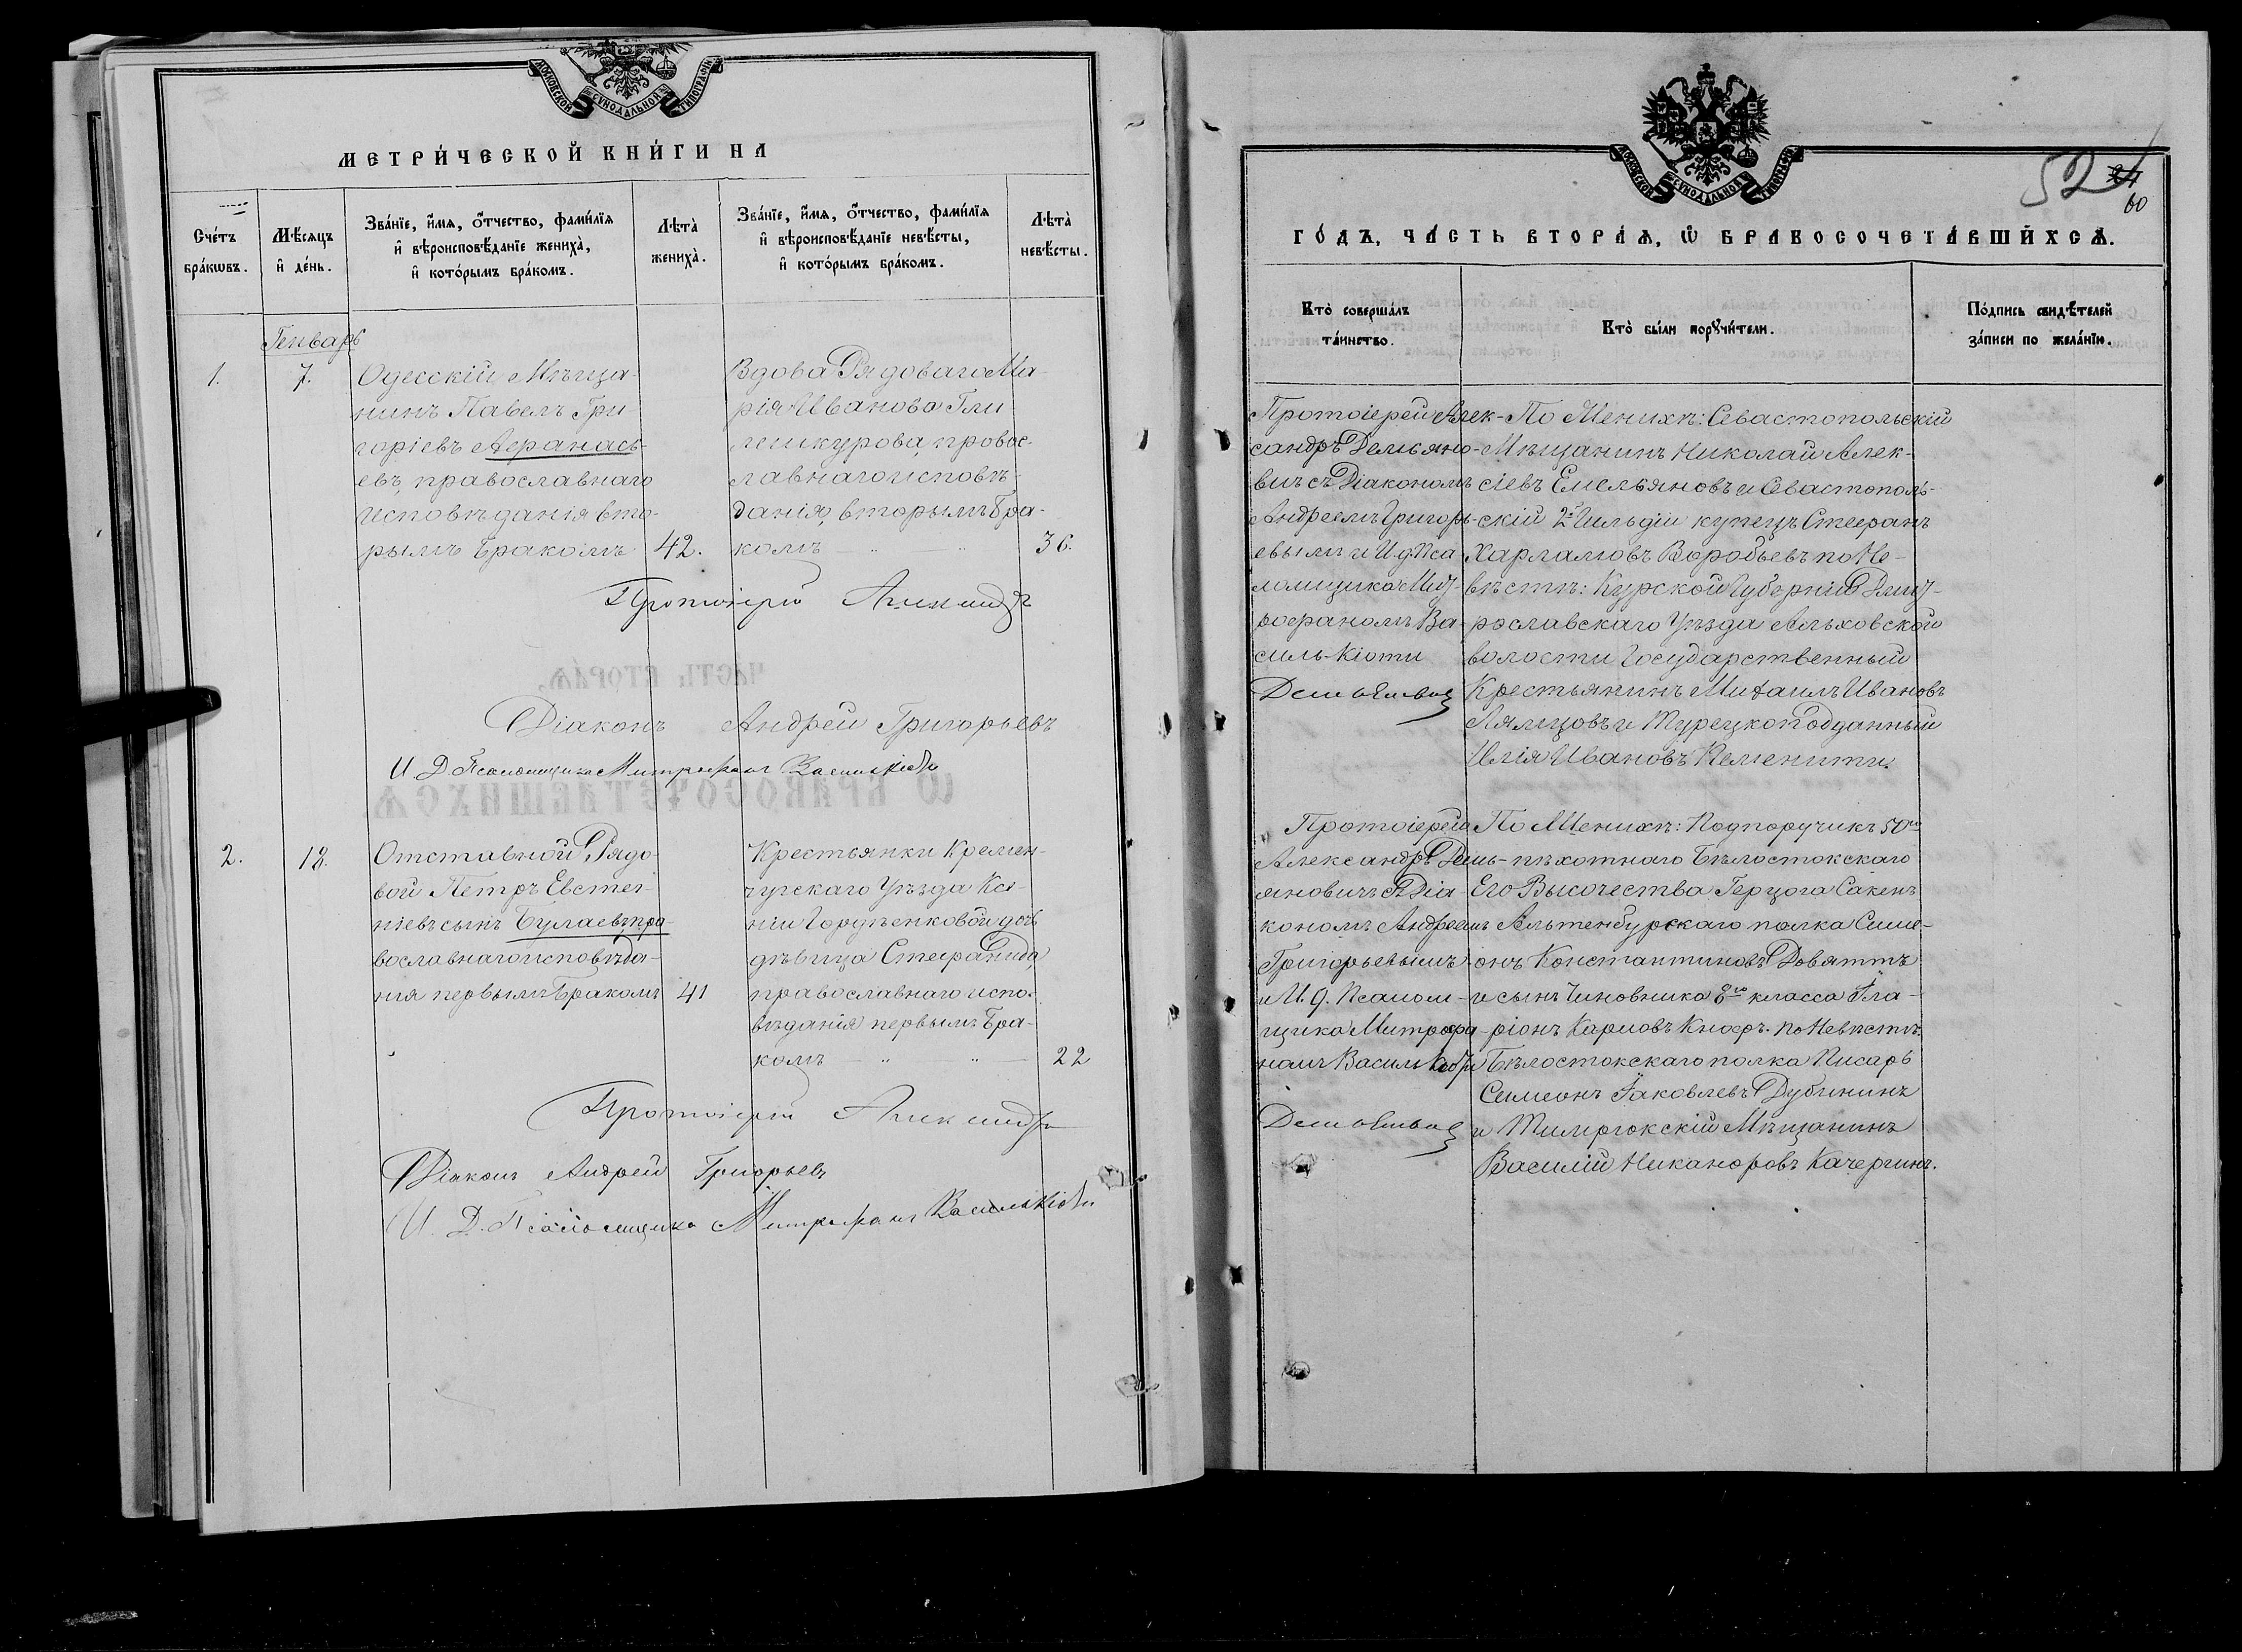 МОСКОВСКОЙ СѴНОДАЛЬНОЙ ТИПОГРАФІИ
МЕТРИ́ЧЕСКОЙ КНИ́ГИ НА
Сче́тъ
бра́кωвъ.
Мѣ́сяцъ
и҆ де́нь.
Зва́нїе, и҆́мѧ, ѻ҆́тчество, фами́лїѧ
и҆ вѣроисповѣ́данїе жениха̀,
и҆ кото́рымъ бра́комъ.
Лѣ́та̀
жениха̀.
Зва́нїе, и҆́мѧ, ѻ҆́тчество, фами́лїѧ
и҆ вѣроисповѣ́данїе невѣ́сты,
и҆ кото́рымъ бра́комъ.
Лѣ́та̀
невѣ́сты.
Генварь
1.
7.
Одесскій Мѣща-
нинъ Павелъ Гри-
горіевъ Аѳанась-
евъ, православнаго
исповѣданія вто-
рымъ бракомъ
42.
Вдова Рядоваго Ма-
рія Иванова
правос-
лавнаго исповѣ-
данія, вторымъ бра-
комъ " "
36.
Протоіерей Александръ
Діаконъ Андрей Григорьевъ
И. Д. Псаломщика Митрофанъ Василькіоти
2.
18.
Отставной Рядо-
вой Петръ Евстег-
ніевъ сынъ Булаевъ, пра-
вославнаго исповѣда-
нія первымъ бракомъ
41
Крестьянки Кремен-
чугскаго Уѣзда Ксе-
ніи Гордѣенковой дочь
дѣвица Стефанида,
православнаго испо-
вѣданія первымъ бра-
комъ " "
22
Протоіерей Александръ
Діаконъ Андрей Григорьевъ
И. Д. Псаломщика Митрофанъ Василькіоти
МОСКОВСКОЙ СѴНОДАЛЬНОЙ ТИПОГРАФІИ
52
60
ГО́ДЪ, ЧА́СТЬ ВТОРА́Ѧ, Ѡ҆ БРАКОСОЧЕТА́ВШИХСѦ.
Кто̀ соверша́лъ
та́инство.
Кто̀ бы́ли порꙋчи́тели.
По́дпись свидѣ́телей
за́писи по жела́нїю.
Протоіерей Алек-
сандръ Демьяно-
вичъ съ Діакономъ
Андреемъ Григорь-
евымъ и И. д. Пса-
ломщика Мит-
рофаномъ Ва-
силь-Кіоти
Демьянович
По Женихѣ: Севастопольскій
Мѣщанинъ Николай Алек-
сіевъ Емельяновъ и Севастополь-
скій 2й Гильдіи купецъ Стефанъ
Харламовъ Воробьевъ по Не-
вѣстѣ: Курской Губерніи Дмит-
рославскаго Уѣзда Альховской
волости Государственный
Крестьянинъ Михаилъ Ивановъ
Лямцовъ и Турецкоподданный
Илія Ивановъ
Протоіерей
Александръ Демь-
яновичъ съ Діа-
кономъ Андреемъ
Григорьевымъ
и И. д. Псалом-
щика Митрофа-
номъ Василькіоти
Демьянович
По Женихѣ: Подпоручикъ 50го
пѣхотнаго Бѣлостокскаго
Его Высочества Герцога Саксенъ
Альтенбургскаго полка Симе-
онъ Константиновъ Довяттъ
и сынъ Чиновника 8го класса Іла-
ріонъ Карловъ Кнорр. по Невѣстѣ.
Бѣлостокскаго полка Писарь
Симеонъ Іаковлевъ Дубининъ
и Темрюкскій Мѣщанинъ
Василій Никаноровъ Качергинъ.